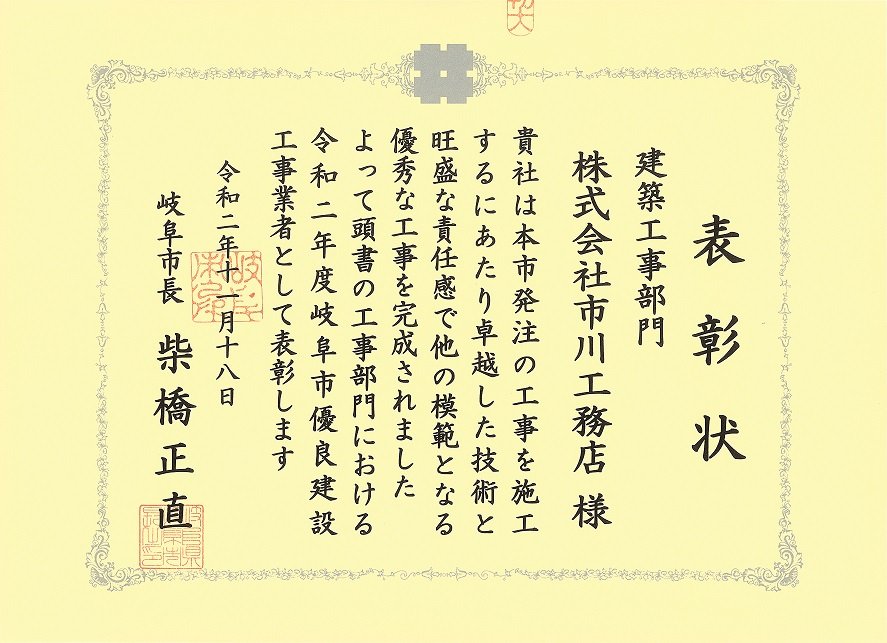 表彰状
建築工事部門
株式会社市川工務店 様
貴社は本市発注の工事を施工
するにあたり卓越した技術と
旺盛な責任感で他の模範となる
優秀な工事を完成されました
よって頭書の工事部門における
令和二年度岐阜市優良建設
工事業者として表彰します
令和二年十一月十八日
岐阜市長 柴橋正直